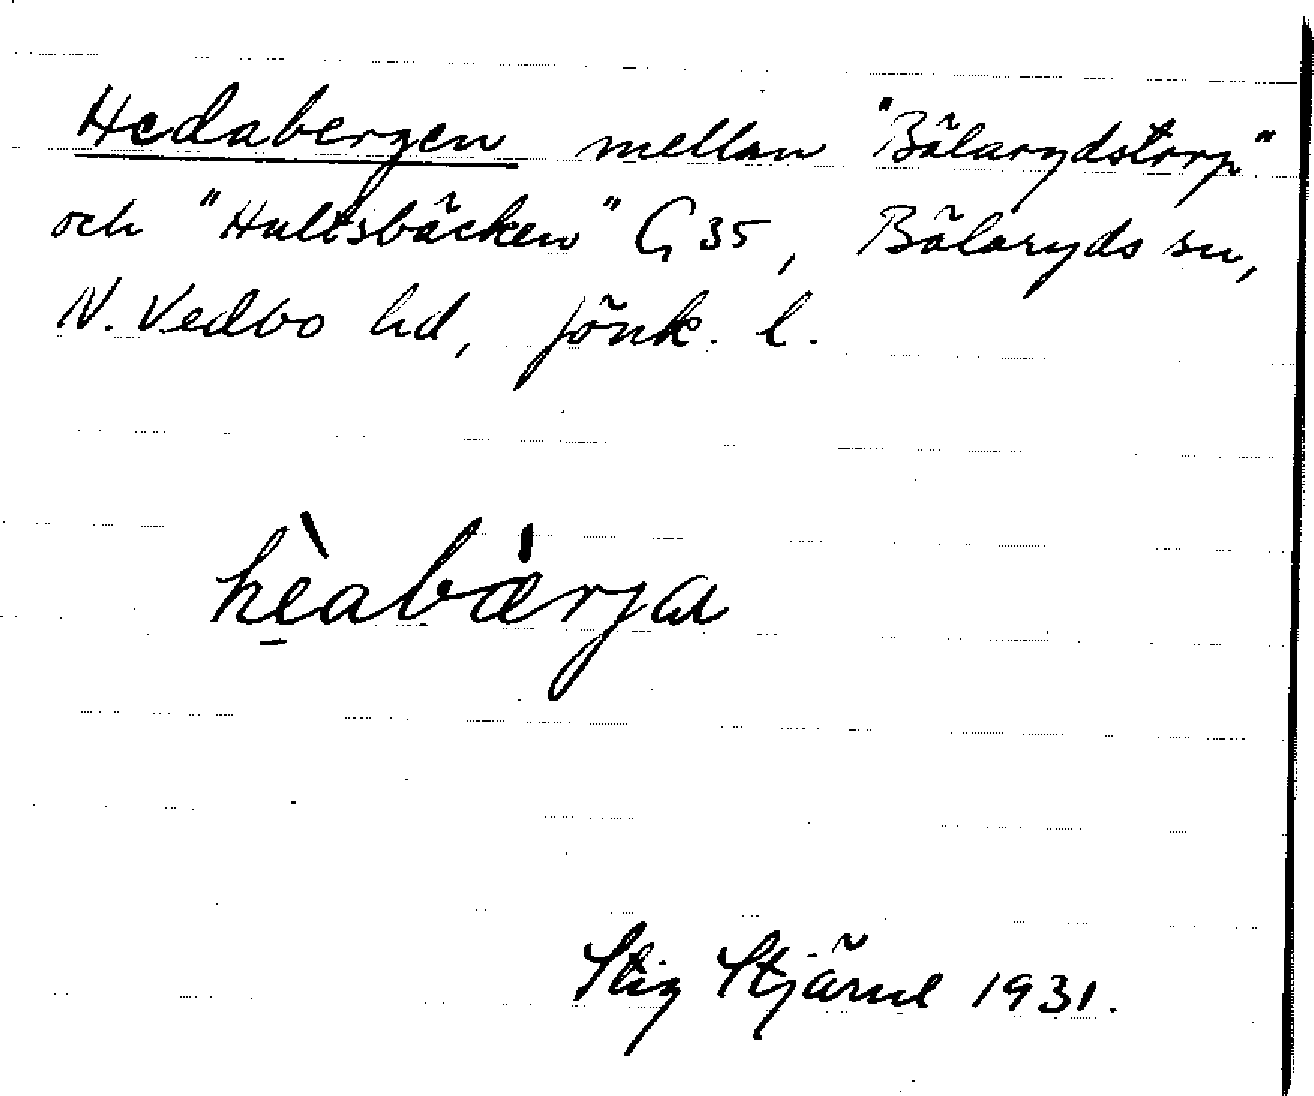 Hedabergen mellan "Bälarydstorp"
och "Hultsbäcken" G 35, Bälaryds sn,
N. Vedbo hd, Jönk. l.
hèabàrja
Stig Stjärne 1931.